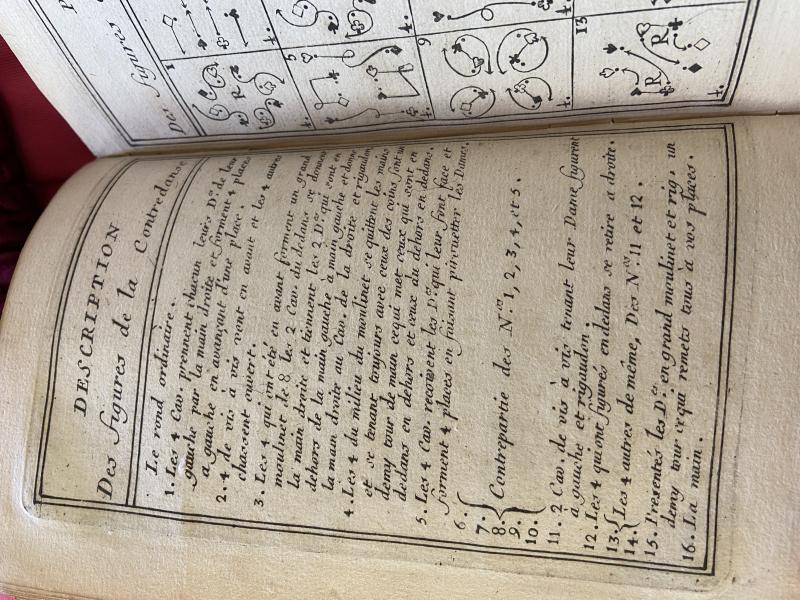 DESCRIPTION
Des figures de la Contredanse
Le rond ordinaire.
1. Les 4 Cav. prennent chacun leurs D.es de leur
gauche par la main droite et forment 4 places
a gauche en avançant d'une place.
2. 4 de vis à vis vont en avant et les 4 autres
chassent ouvert.
3. Les 4 qui ont été en avant forment un grand
moulinet de 8. les 2 Cav. du dedans se donnent
la main droite et tiennent les 2 D.es qui sont en
dehors de la main gauche à main gauche et donne
la main droite au Cav. de la droite et rigaudon
4. Les 4 du milieu du moulinet se quittent les mains
et se tenant toujours avec ceux des coins font un
demy tour de main ce qui met ceux qui sont en
dedans en dehors et ceux du dehors en dedans.
5. Les 4 Cav. recoivent les D.es qui leur font face et
forment 4 places en faisant pirouetter les Dames.
6.
7.
8. Contrepartie des N.os 1, 2, 3, 4, et 5.
9.
10.
11. 2 Cav. de vis à vis tenant leur Dame figurent
à gauche et rigaudon.
12. Les 4 qui ont figurés en dedans se retire a droite.
13.
14. Les 4 autres de même, Des N.os 11 et 12.
15. Presentés les D.es en grand moulinet et rig. un
demy tour ce qui remets tous à vos places.
16. La main.
Des figures
1
4.
5
4.
4.
9
4.
4.
13
R
R
R
4.